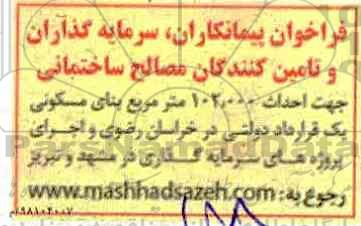 فراخوان پیمانکاران، سرمایه گذاران
و تامین کنندگان مصالح ساختمانی
جهت احداث ۱۰۲،۰۰۰ متر مربع بنای مسکونی
یک قرارداد دولتی در خراسان رضوی و اجرای
پروژه های سرمایه گذاری در مشهد و تبریز
رجوع به: www.mashhadsazeh.com
ParsNamadData